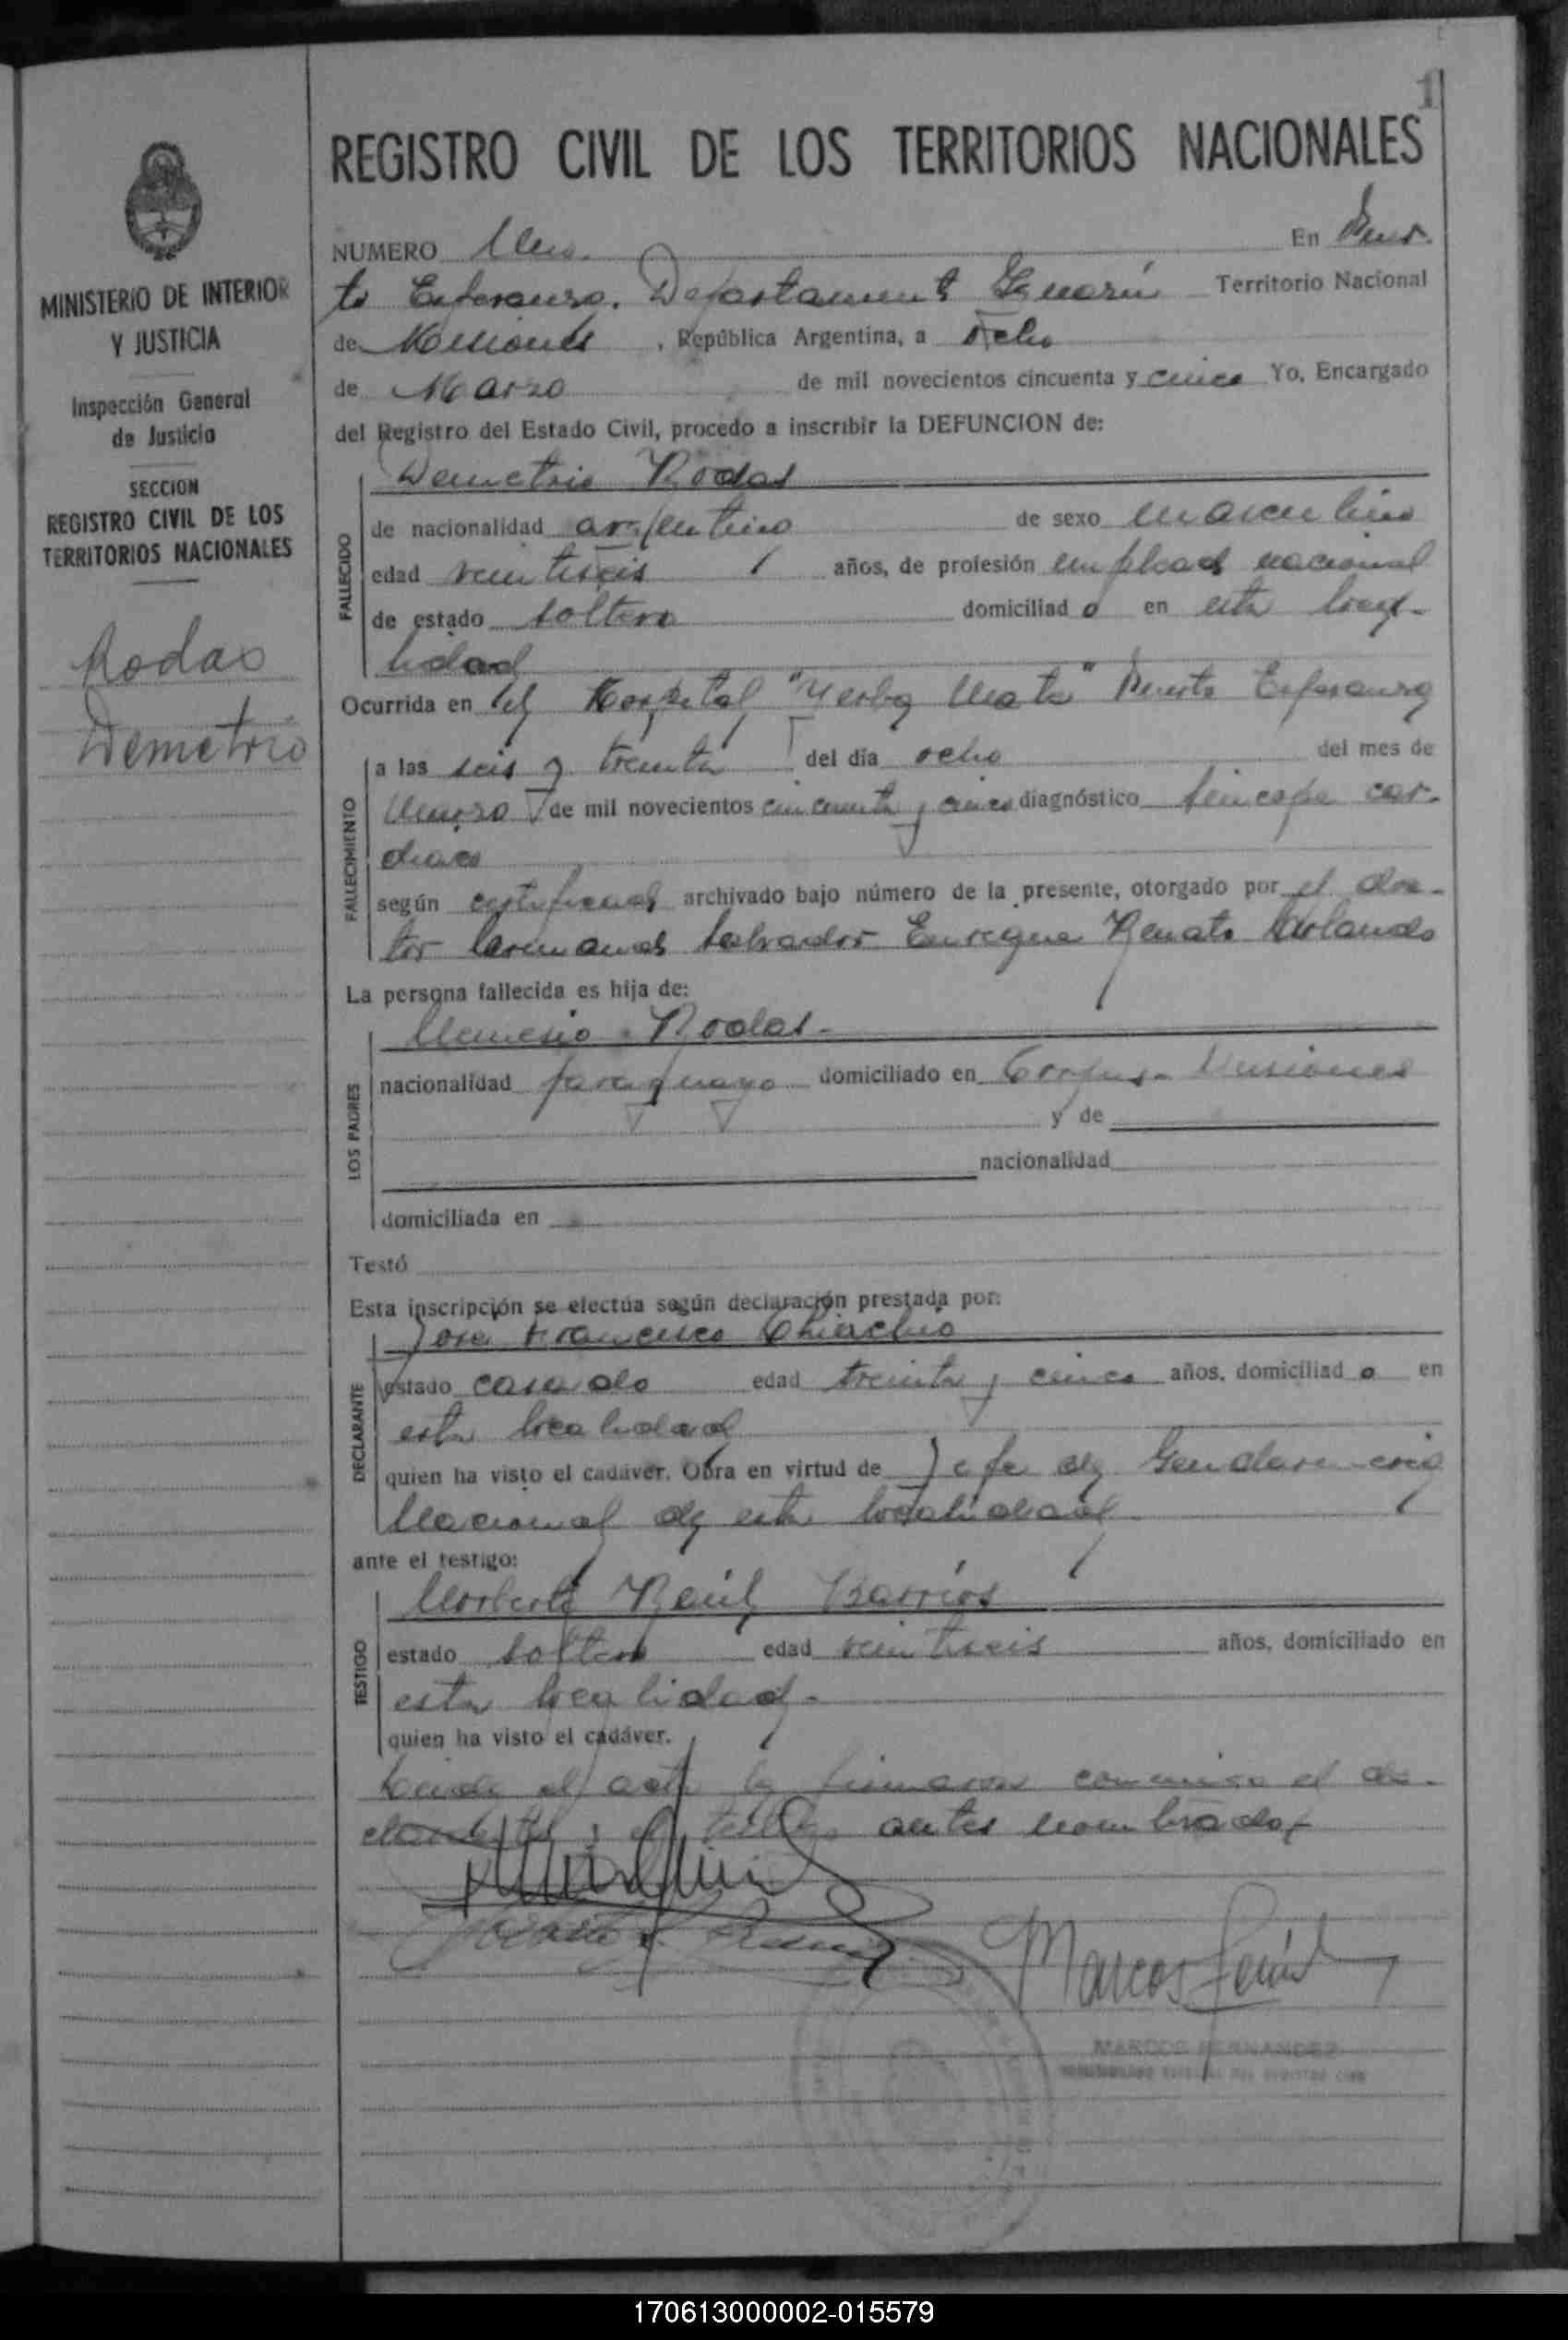 1
MINISTERIO DE INTERIOR
Y JUSTICIA
Inspección General
de Justicia
SECCION
REGISTRO CIVIL DE LOS
TERRITORIOS NACIONALES
Rodas
Demetrio
REGISTRO CIVIL DE LOS TERRITORIOS NACIONALES
NUMERO Uno. En Puer-
to Esperanza. Departamento Territorio Nacional
de Misiones, República Argentina, a ocho
de Marzo de mil novecientos cincuenta y cinco Yo, Encargado
del Registro del Estado Civil, procedo a inscribir la DEFUNCION de:
Demetrio Rodas
FALLECIDO
de nacionalidad argentino de sexo masculino
edad veintiseis años, de profesión empleado nacional
de estado soltero domiciliado en esta loca-
lidad
Ocurrida en el Hospital "Yerba Mate" Puerto Esperanza
FALLECIMIENTO
a las seis y treinta del día ocho del mes de
Marzo de mil novecientos cincuenta y cinco diagnóstico sincope car-
diaco
según certificado archivado bajo número de la presente, otorgado por el doc-
tor Salvador Enrique Renato
La persona fallecida es hija de:
LOS PADRES
Nemesio Rodas-
nacionalidad paraguayo domiciliado en Corpus- Misiones
y de
nacionalidad
domiciliada en
Testó
Esta inscripción se efectúa según declaración prestada por:
DECLARANTE
Jose Francisco
estado casado edad treinta y cinco años, domiciliado en
esta localidad
quien ha visto el cadáver. Obra en virtud de Jefe de Gendarmeria
Nacional de esta localidad
ante el testigo:
TESTIGO
Norberto Raúl Barrios
estado soltero edad veintiseis años, domiciliado en
esta localidad-
quien ha visto el cadáver.
Leida el acta la firmaron conmigo el de-
clarante y el testigo antes nombrados
Marcos
MARCOS FERNANDEZ
170613000002-015579